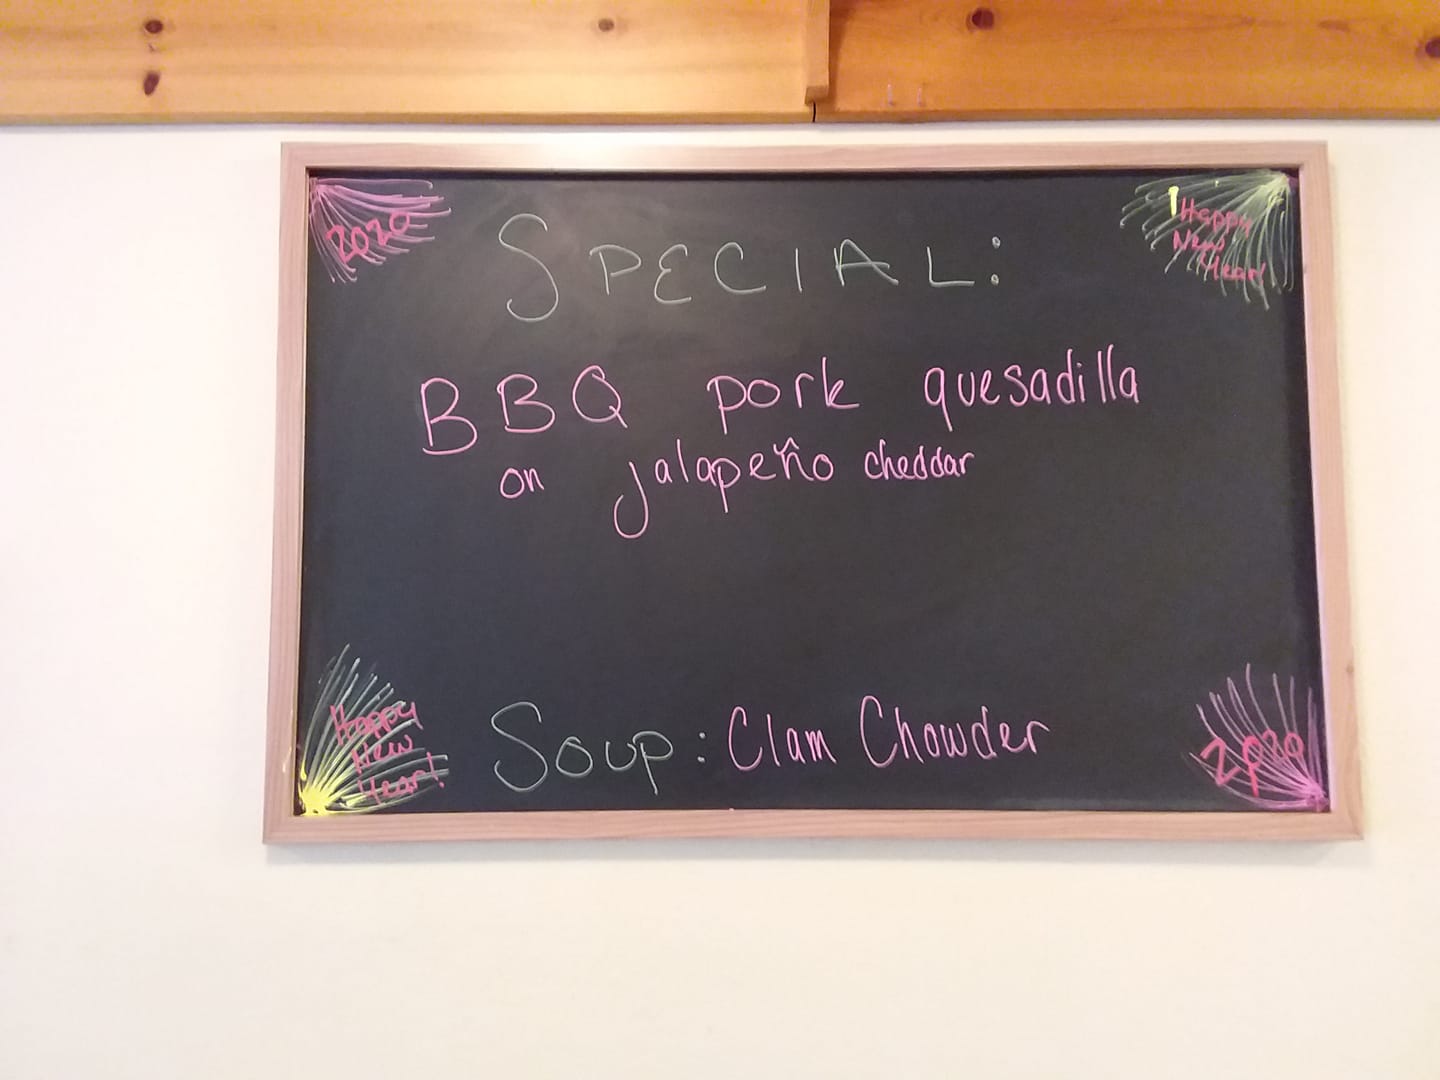 2020
Happy
New
Year!
SPECIAL:
BBQ pork quesadilla
on jalapeño cheddar
Soup: Clam Chowder
Happy
New
Year!
2020